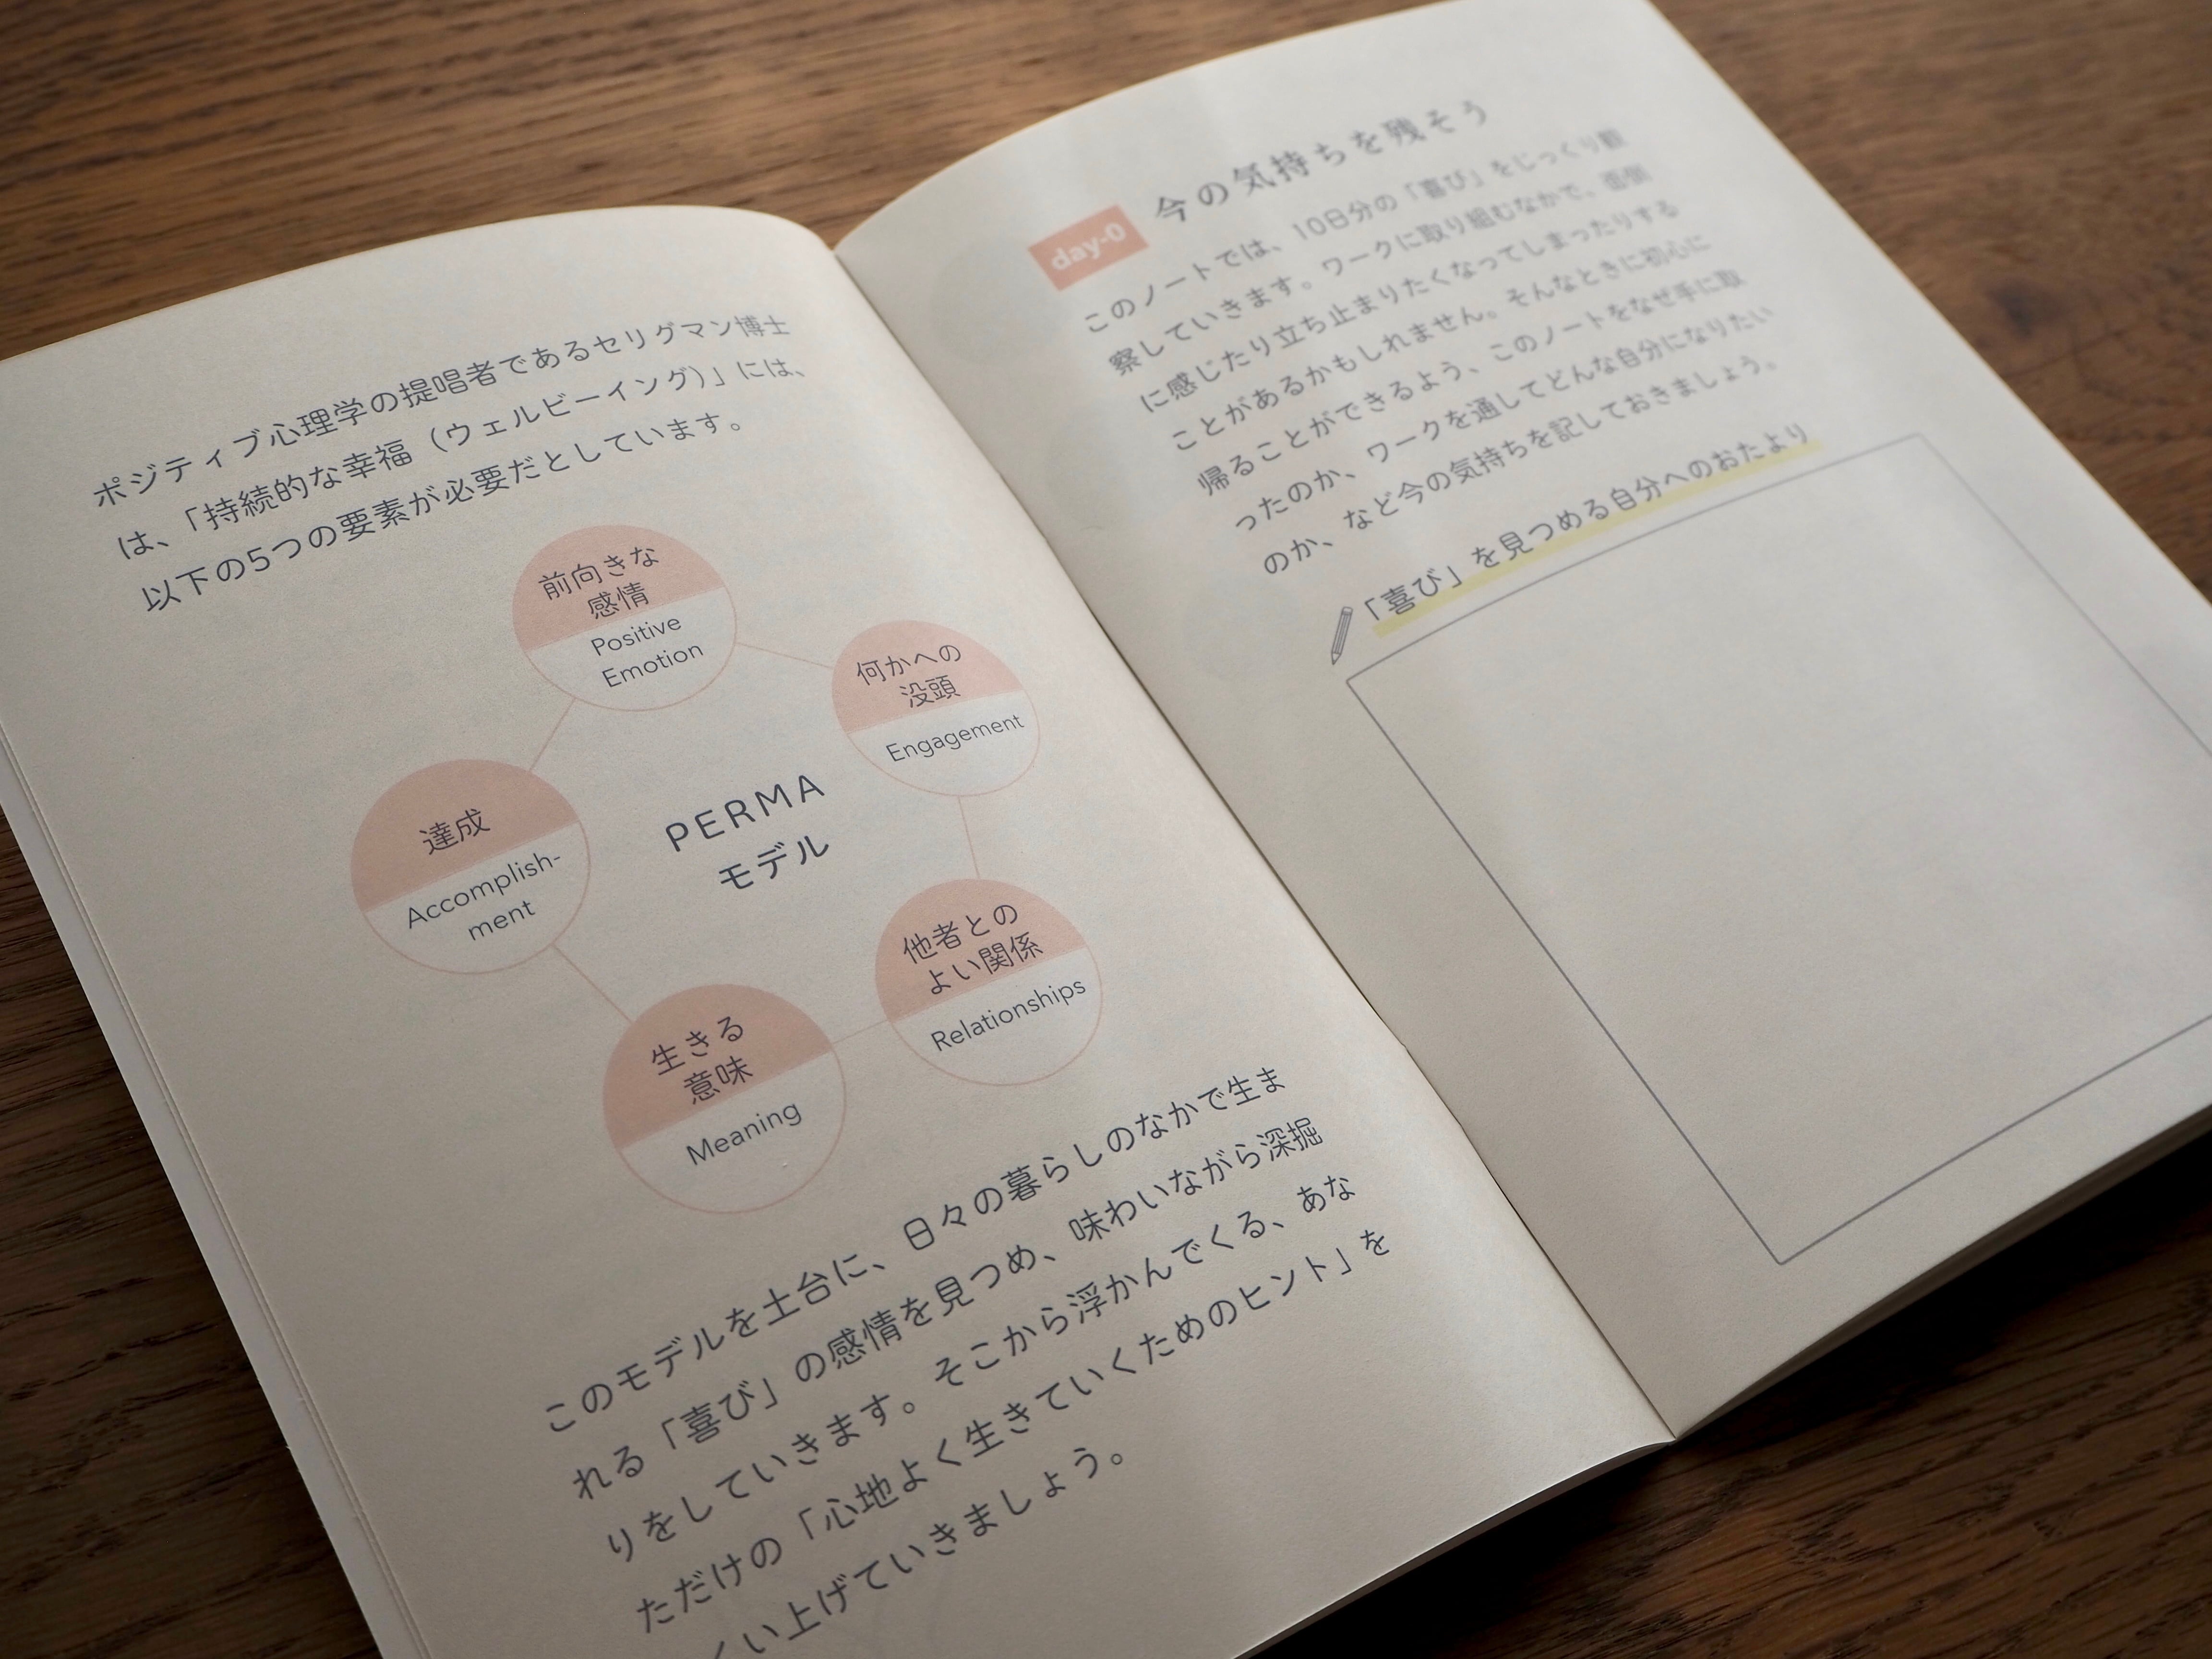 ポジティブ心理学の提唱者であるセリグマン博士
は、「持続的な幸福（ウェルビーイング）」には、
以下の5つの要素が必要だとしています。
前向きな
感情
Positive
Emotion
何かへの
没頭
Engagement
他者との
よい関係
Relationships
生きる
意味
Meaning
達成
Accomplish-
ment
PERMA
モデル
このモデルを土台に、日々の暮らしのなかで生ま
れる「喜び」の感情を見つめ、味わいながら深掘
りをしていきます。そこから浮かんでくる、あな
ただけの「心地よく生きていくためのヒント」を
くい上げていきましょう。
day-0 今の気持ちを残そう
このノートでは、10日分の「喜び」をじっくり観
察していきます。ワークに取り組むなかで、面倒
に感じたり立ち止まりたくなってしまったりする
ことがあるかもしれません。そんなときに初心に
帰ることができるよう、このノートをなぜ手に取
ったのか、ワークを通してどんな自分になりたい
のか、など今の気持ちを記しておきましょう。
「喜び」を見つめる自分へのおたより